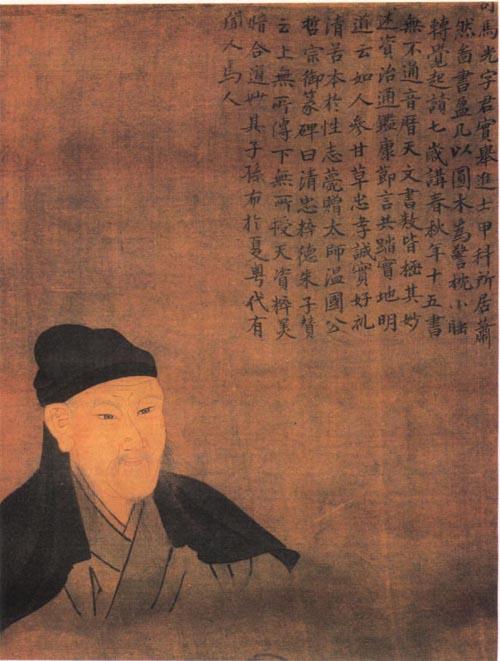 司馬光字君實舉進士甲科所居蕭
然啚書盈几以圓木為警枕小睡
轉覺起讀七歲講春秋年十五書
無不通音曆天文書数皆極其妙
述資治通鑑康節言其踏實地明
道云如人參甘草忠孝誠實好礼
清苦本於性志薨贈太師温國公
哲宗御篆碑曰清忠粹德朱子賛
云上無所傳下無所授天資粹美
暗合道妙其子孫布於夏粤代有
人馬人